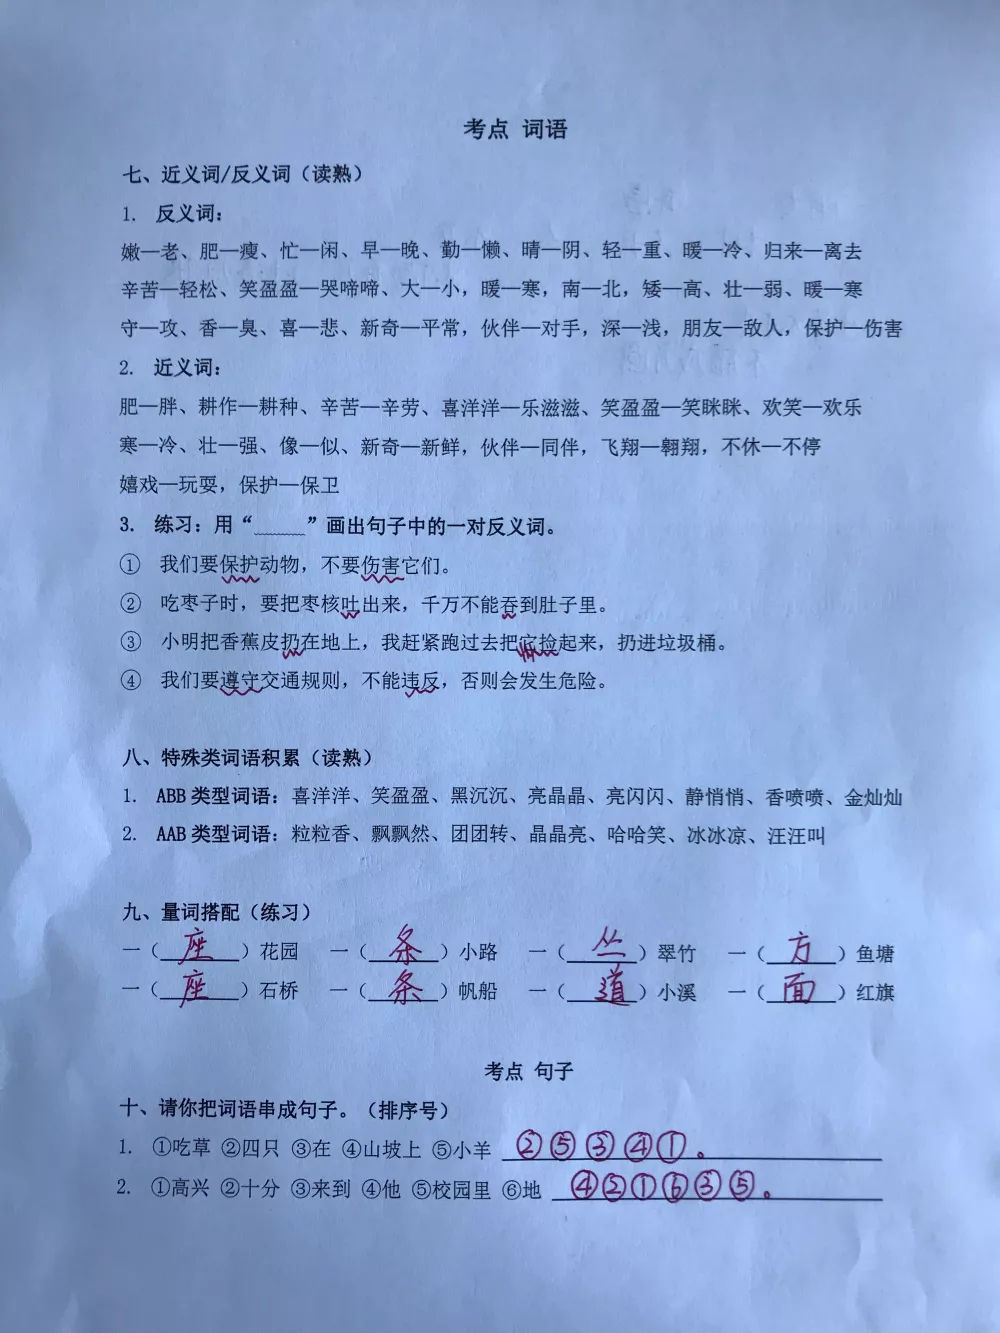 考点 词语
七、近义词/反义词（读熟）
1. 反义词：
嫩—老、肥—瘦、忙—闲、早—晚、勤—懒、晴—阴、轻—重、暖—冷、归来—离去
辛苦—轻松、笑盈盈—哭啼啼、大—小，暖—寒，南—北，矮—高、壮—弱、暖—寒
守—攻、香—臭、喜—悲、新奇—平常，伙伴—对手，深—浅，朋友—敌人，保护—伤害
2. 近义词：
肥—胖、耕作—耕种、辛苦—辛劳、喜洋洋—乐滋滋、笑盈盈—笑眯眯、欢笑—欢乐
寒—冷、壮—强、像—似、新奇—新鲜，伙伴—同伴，飞翔—翱翔，不休—不停
嬉戏—玩耍，保护—保卫
3. 练习：用“______”画出句子中的一对反义词。
① 我们要保护动物，不要伤害它们。
② 吃枣子时，要把枣核吐出来，千万不能吞到肚子里。
③ 小明把香蕉皮扔在地上，我赶紧跑过去把它捡起来，扔进垃圾桶。
④ 我们要遵守交通规则，不能违反，否则会发生危险。
八、特殊类词语积累（读熟）
1. ABB 类型词语：喜洋洋、笑盈盈、黑沉沉、亮晶晶、亮闪闪、静悄悄、香喷喷、金灿灿
2. AAB 类型词语：粒粒香、飘飘然、团团转、晶晶亮、哈哈笑、冰冰凉、汪汪叫
九、量词搭配（练习）
一（座）花园 一（条）小路 一（丛）翠竹 一（方）鱼塘
一（座）石桥 一（条）帆船 一（道）小溪 一（面）红旗
考点 句子
十、请你把词语串成句子。（排序号）
1. ①吃草 ②四只 ③在 ④山坡上 ⑤小羊 ②⑤③④①。
2. ①高兴 ②十分 ③来到 ④他 ⑤校园里 ⑥地 ④②①⑥③⑤。